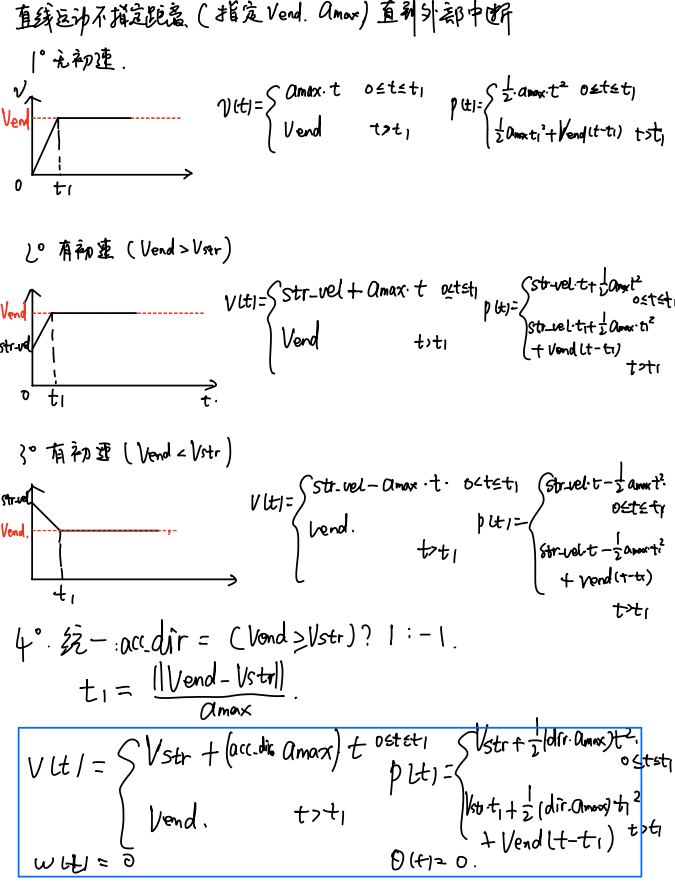 直线运动不指定距离 (指定Vend. amax) 直到外部中断
1° 无初速.
v
Vend
0 t1
V(t)= { amax·t 0≤t≤t1
Vend t>t1
p(t)= { 1/2·amax·t² 0≤t≤t1
1/2 amaxt1² + Vend(t-t1) t>t1
2° 有初速 (Vend>Vstr)
Vend
str-vel
0 t1 t.
V(t)= { str_vel + amax·t 0≤t≤t1
Vend t>t1
p(t)= { str-vel·t+1/2 amaxt²
0≤t≤t1
str-vel·t1+1/2 amax·t1²
+ Vend(t-t1)
t>t1
3° 有初速 (Vend<Vstr)
str-vel
Vend.
t1
V(t)= { str-vel - amax·t. 0<t≤t1
Vend.
t>t1
p(t)= { str-vel·t - 1/2 amaxt².
0≤t≤t1
str-vel·t - 1/2 amax·t1²
+ Vend(t-t1)
t>t1
4°. 统一: acc_dir = (Vend≥Vstr)? 1 : -1.
t1 = ||Vend - Vstr|| / amax .
V(t) = { Vstr + (acc_dir. amax) t 0≤t≤t1
Vend. t>t1
w(t) = 0
p(t)= { Vstr + 1/2 (dir·amax)t².
0≤t≤t1
Vstr·t1 + 1/2 (dir·amax)t1²
+ Vend(t-t1) t>t1
θ(t) = 0.